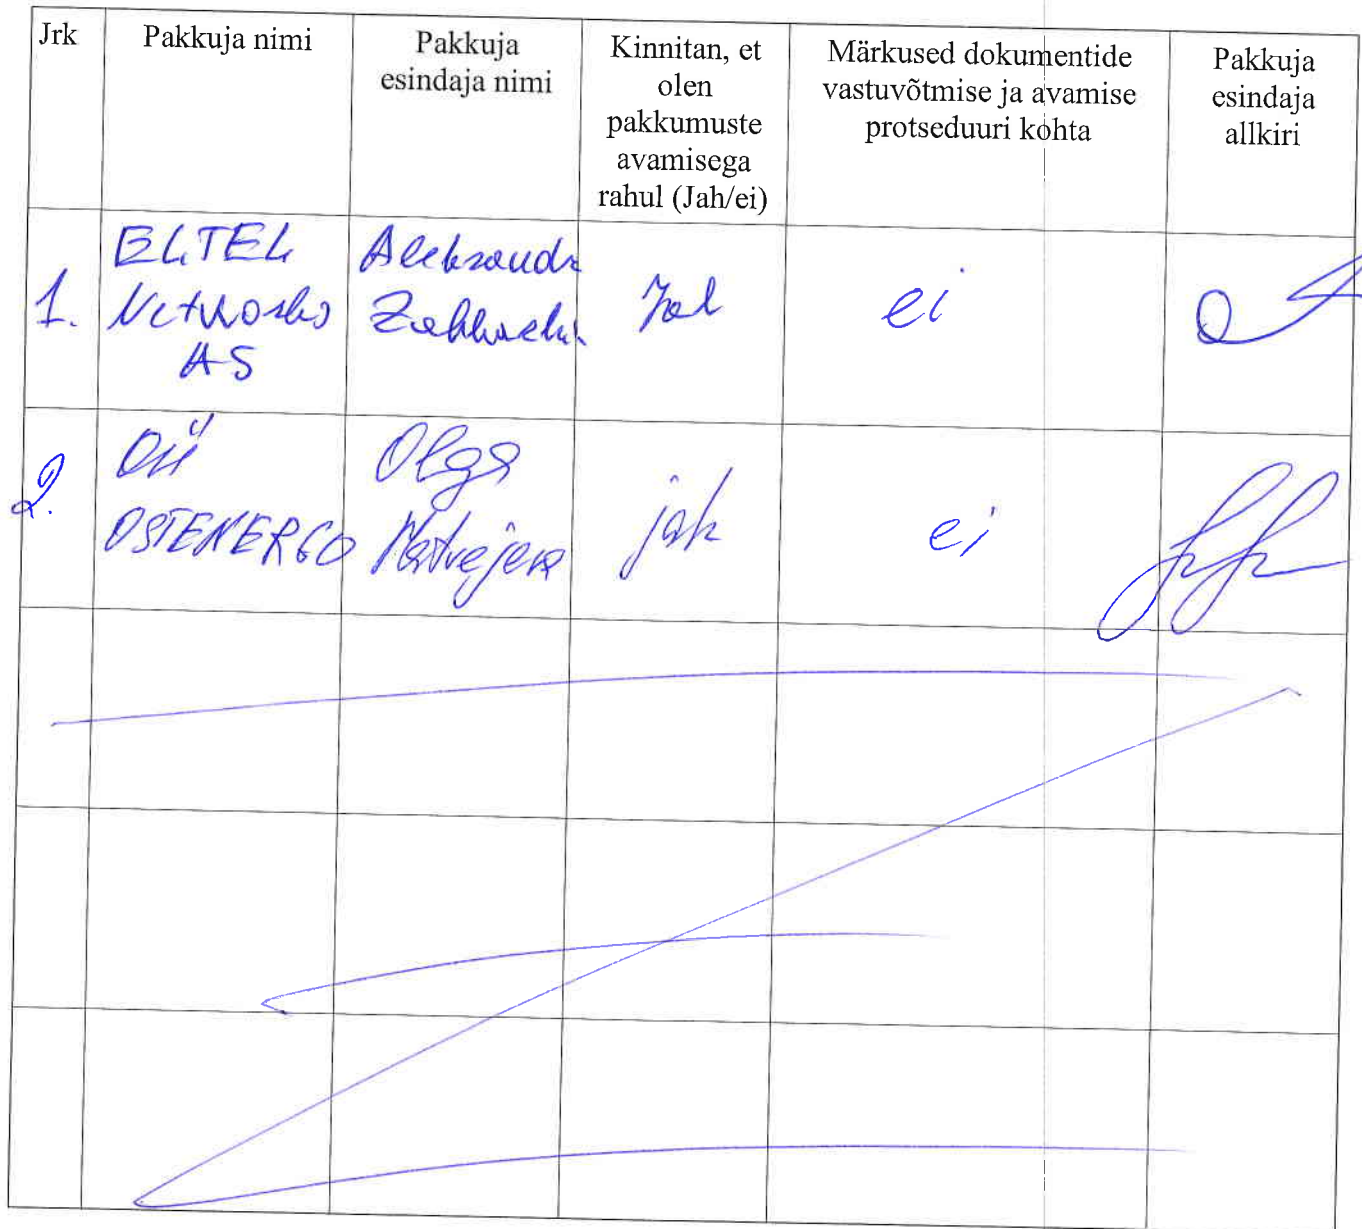 Jrk
Pakkuja nimi
Pakkuja
esindaja nimi
Kinnitan, et
olen
pakkumuste
avamisega
rahul (Jah/ei)
Märkused dokumentide
vastuvõtmise ja avamise
protseduuri kohta
Pakkuja
esindaja
allkiri
1.
ELTEL
Networks
AS
Aleksandr
Jah
ei
2.
OÜ
OSTENERGO
Olga
Matvejeva
jah
ei